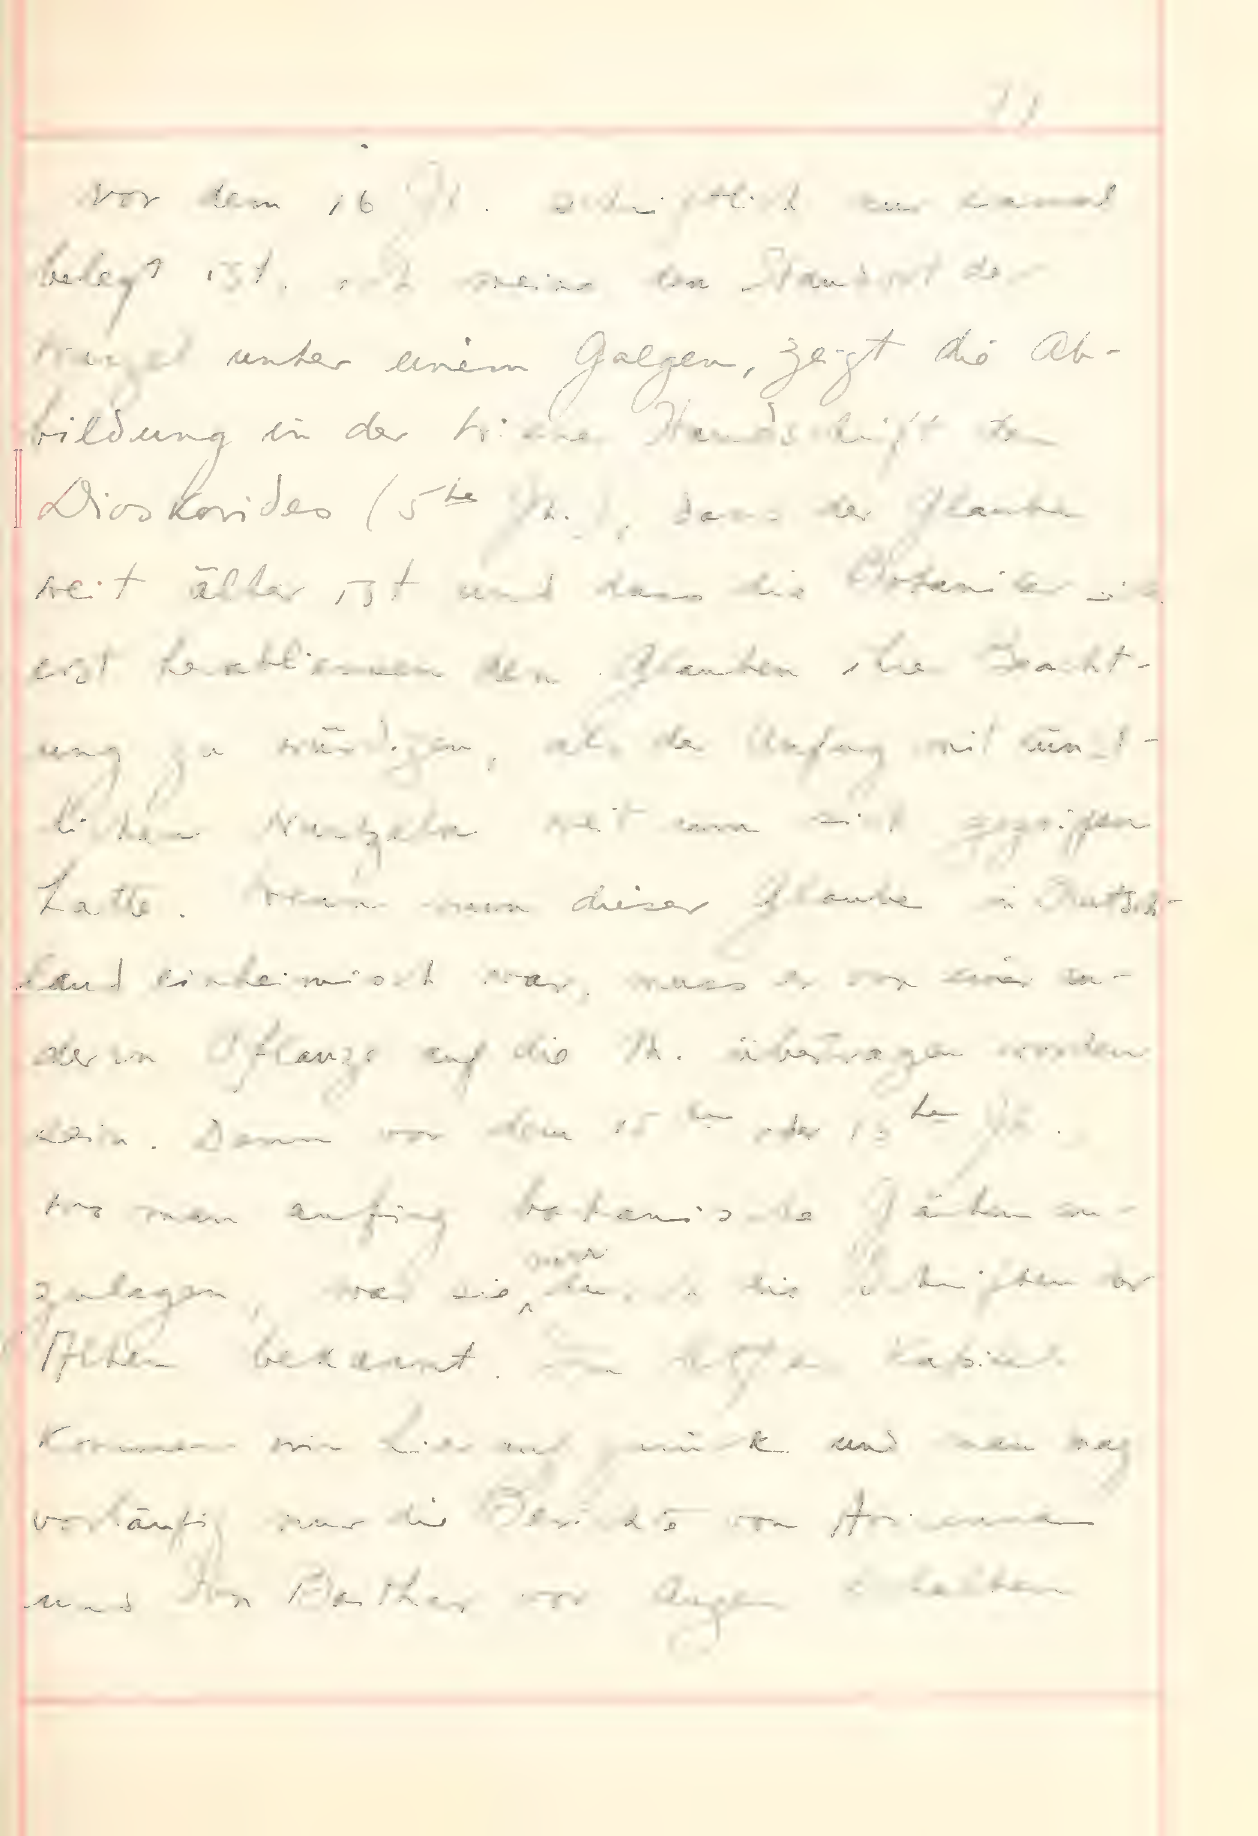 vor dem 16 Jh. schriftlich nur einmal
belegt ist, ich meine den Standort der
Wurzel unter einem Galgen, zeigt die Ab-
bildung in der Wiener Handschrift des
Dioskorides (5te Jh.), dass der Glaube
weit älter ist und dass die Botaniker sich
erst herabliessen den Glauben ihrer Beacht-
ung zu würdigen, als der Unfug mit künst-
lichen Wurzeln weit um sich gegriffen
hatte. Wenn nun dieser Glaube in Deutsch-
land einheimisch war, muss er von einer an-
deren Pflanze auf die M. übertragen worden
sein. Denn vor dem 15ten oder Jh.,
wo man anfing botanische Gärten an-
zulegen, war sie nur durch die Schriften der
Alten bekannt. Im letzten Kapitel
kommen wir hierauf zurück und man mag
vorläufig nur die Berichte von
und Ibn Beithar vor Augen behalten